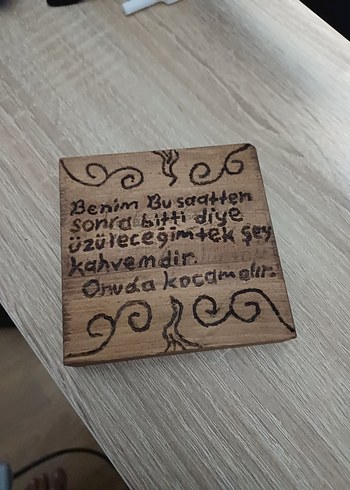 Benim Bu saatten
sonra bitti diye
üzüleceğim tek şey
kahvemdir.
Onuda kocam alır.